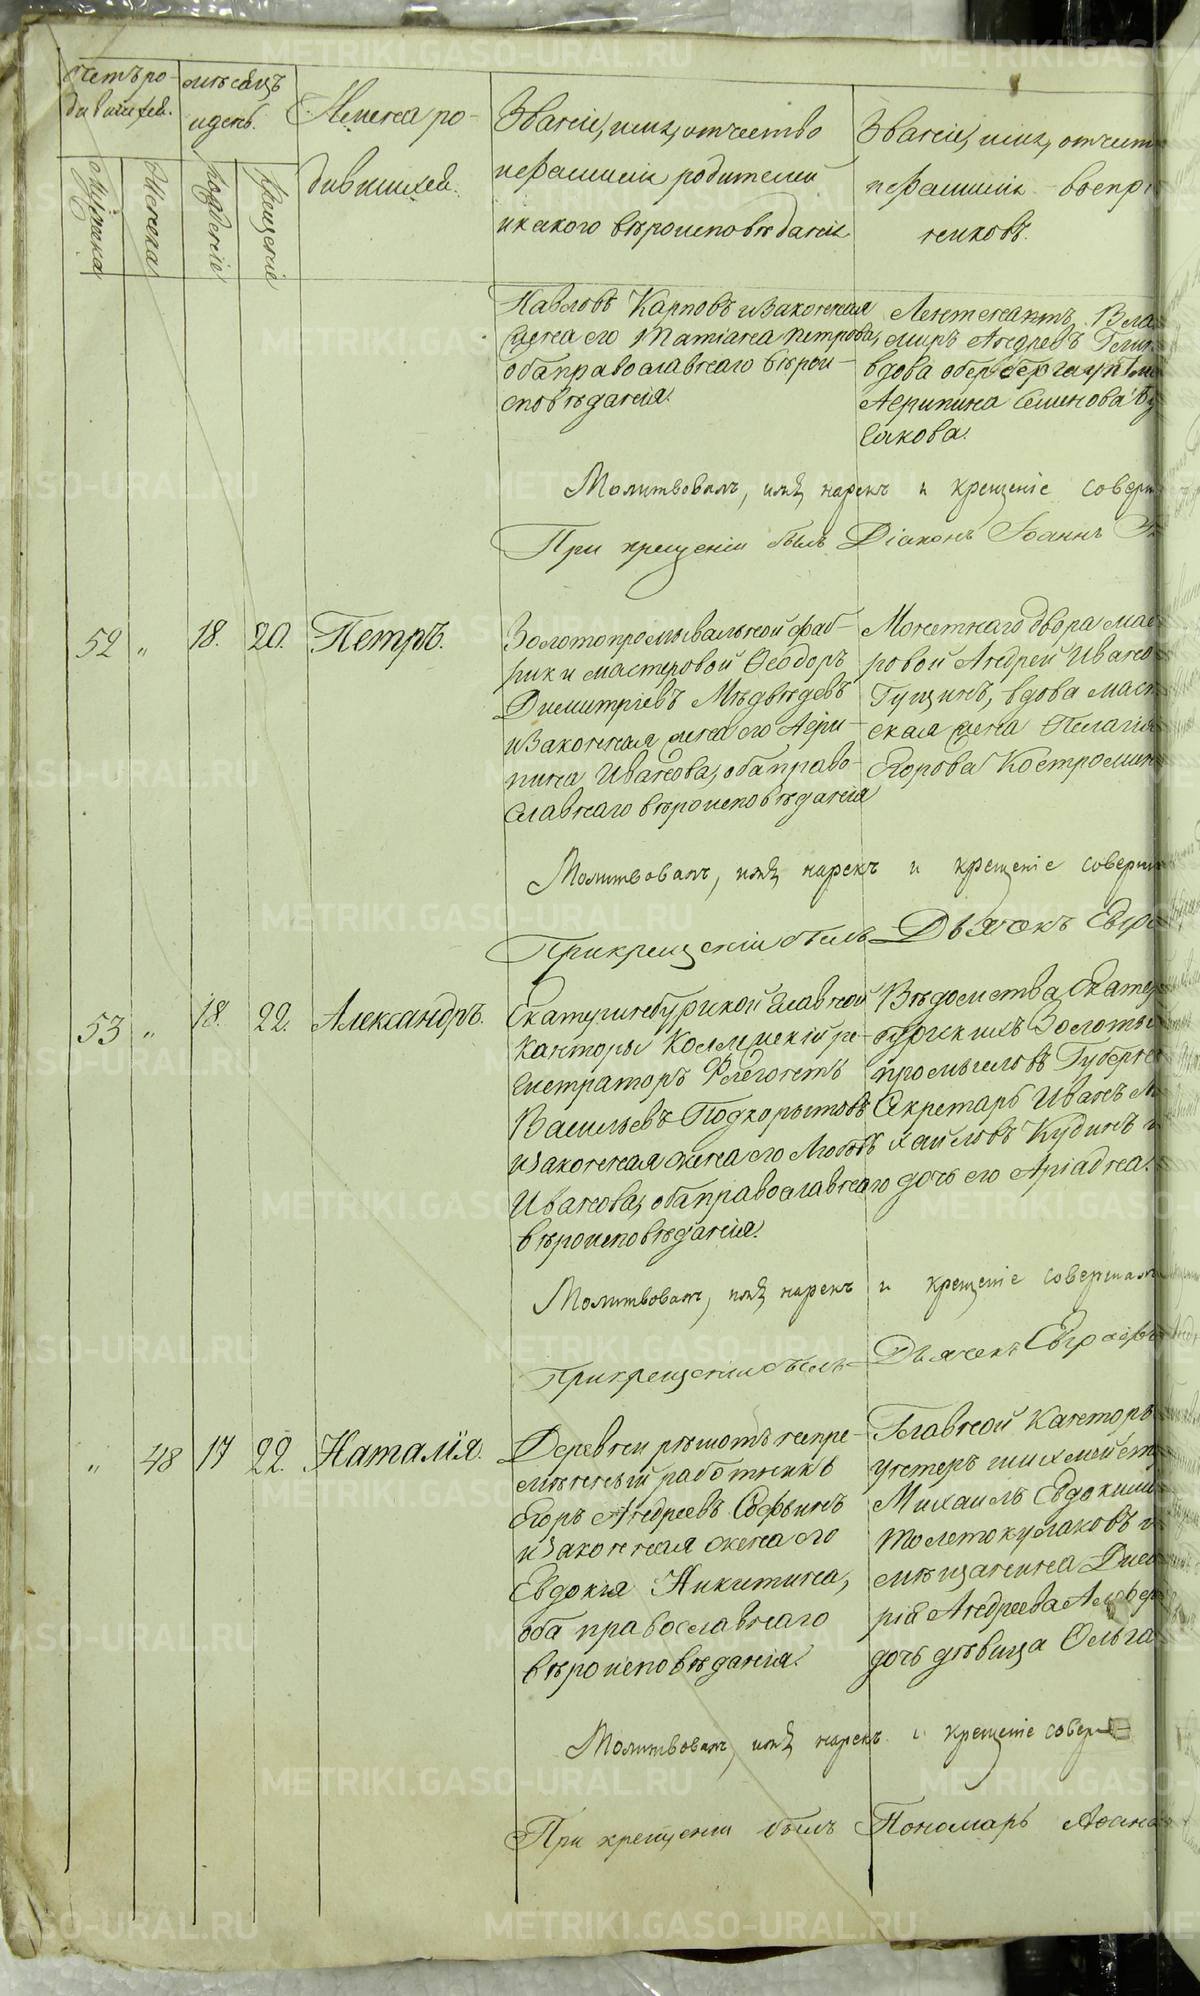 Счетъ ро-
дившихся.
Мужска
Женска
мѣсяцъ
и день.
Рожденія
Крещенія
Имена ро-
дившихся.
Званіе, имя, отчество
и фамилія родителей
и какого вѣроисповѣданія
Званіе, имя, отчест
и фамилія воспрі
никовъ.
Павловъ Карповъ и законная
жена его Матіана Петрова,
оба православнаго вѣрои-
сповѣданія.
Лейтенантъ Вла
миръ Андреевъ
вдова обербергауптм
Агрипина Семенова
сакова.
Молитвовалъ, имя нарекъ и крещеніе соверш
При крещеніи былъ Діаконъ Іоаннъ
52 " 18. 20. Петръ.
Золотопромывальной фаб-
рики мастеровой Ѳеодоръ
Димитріевъ Медвѣдевъ
и законная жена его Агри-
пина Иванова, оба право-
славнаго вѣроисповѣданія
Монетнаго двора мас
ровой Андрей Ивано
Гущинъ, вдова маст
ская жена Пелагія
Егорова Костромин
Молитвовалъ, имя нарекъ и крещеніе соверш
При крещеніи былъ Дьячокъ Евгр
53 " 18. 22. Александръ.
Екатеринбургской Главной
Канторы Коллежскій ре-
гистраторъ Флегонтъ
Васильевъ Подкорытовъ
и законная жена его Любовь
Иванова, оба православнаго
вѣроисповѣданія.
Вѣдомства Екатер
бургскихъ Золоты
промысловъ Губернс
Секретарь Иванъ М
хайловъ Кудинъ и
дочь его Аріадна.
Молитвовалъ, имя нарекъ и крещеніе совершал
При крещеніи былъ Дьячекъ Евграфъ
" 48 17 22. Наталія.
Деревни рѣшотъ непре-
мѣнный работникъ
Егоръ Андреевъ Софьинъ
и законная жена его
Евдокія Никитина,
оба православнаго
вѣроисповѣданія.
Главной Канторы
унтеръ шихмейст
Михаилъ Евдоким
Толстокулаковъ и
мѣщанина Дими
рія Андреева Алфер
дочь дѣвица Ольга
Молитвовалъ, имя нарекъ и крещеніе соверш
При крещеніи былъ Пономарь Аѳана
METRIKI.GASO-URAL.RU